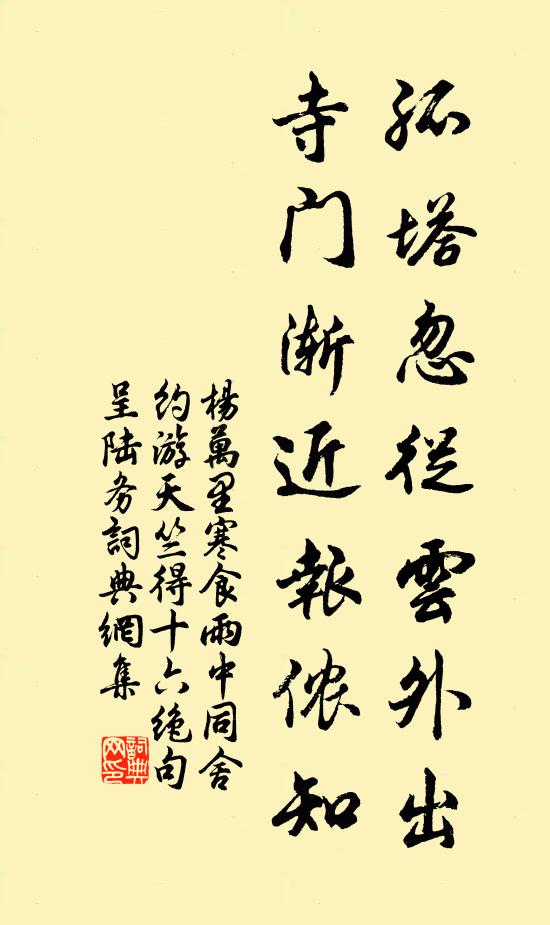 孤塔忽從雲外出
寺门渐近報侬知
楊萬里寒食雨中同舍
约游天竺得十六绝句
呈陆务詞典網集
詞典
网印